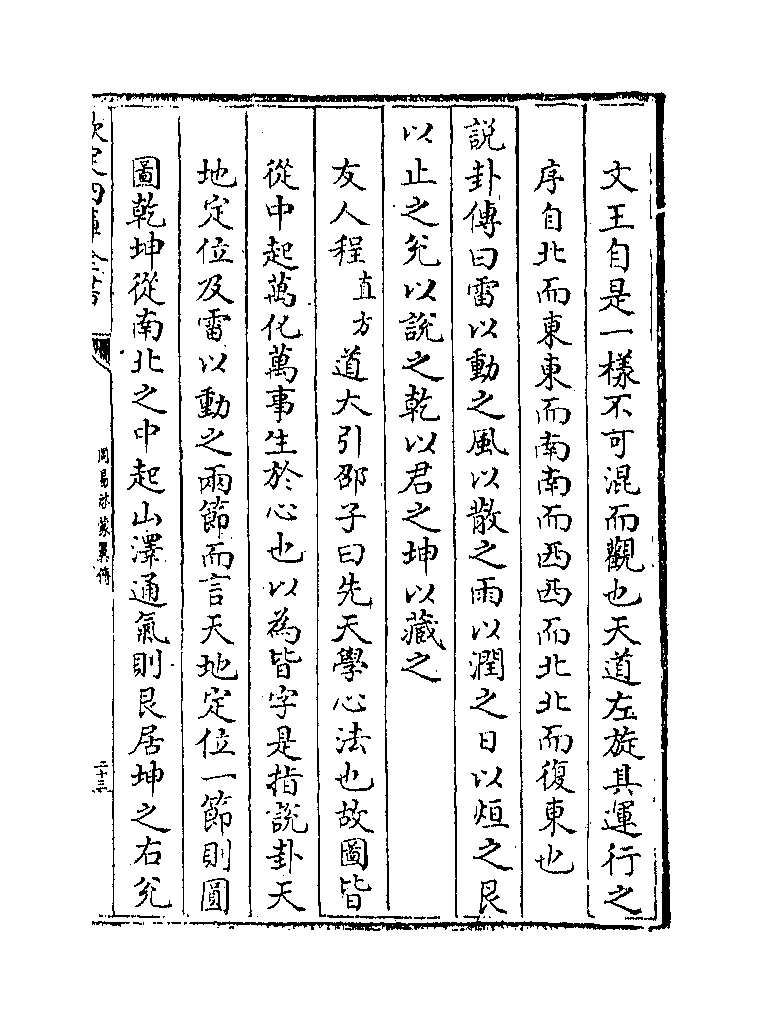 文王自是一樣不可混而觀也天道左旋其運行之
序自北而東東而南南而西西而北北而復東也
說卦傳曰雷以動之風以散之雨以潤之日以烜之艮
以止之兊以說之乾以君之坤以藏之
友人程直方道大引邵子曰先天學心法也故圖皆
從中起萬化萬事生於心也以為皆字是指說卦天
地定位及雷以動之兩節而言天地定位一節則圓
圖乾坤從南北之中起山澤通氣則艮居坤之右兊
欽定四庫全書
周易啓蒙翼傳
二十三